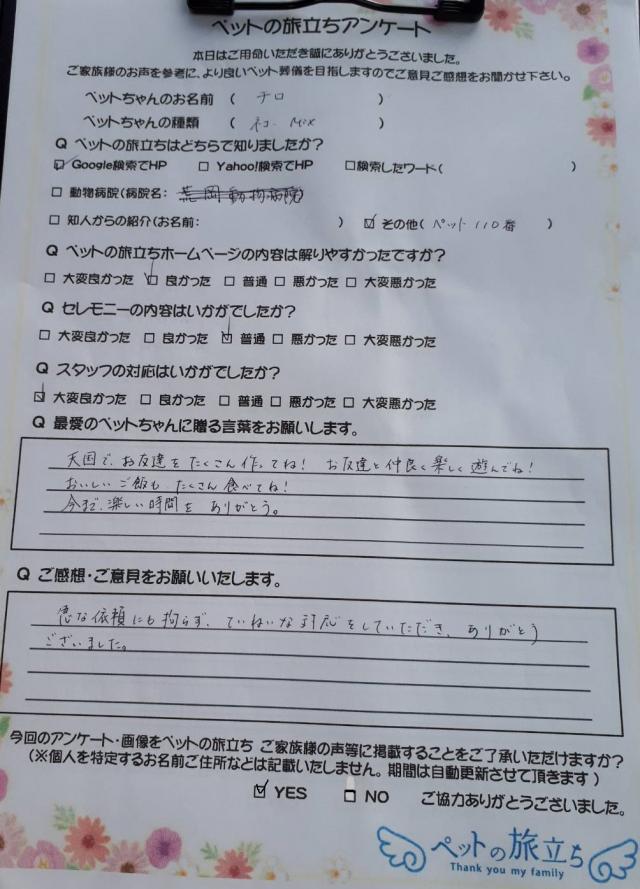 ペットの旅立ちアンケート
本日はご用命いただき誠にありがとうございました。
ご家族様のお声を参考に、より良いペット葬儀を目指しますのでご意見ご感想をお聞かせ下さい。
ペットちゃんのお名前 ( チロ )
ペットちゃんの種類 ( ネコ Mix )
Q ペットの旅立ちはどちらで知りましたか?
☑ Google検索でHP □ Yahoo!検索でHP □検索したワード( )
□ 動物病院(病院名: 荒岡動物病院)
□ 知人からの紹介(お名前: ) ☑ その他( ペット110番 )
Q ペットの旅立ちホームページの内容は解りやすかったですか?
□ 大変良かった ☑ 良かった □ 普通 □ 悪かった □ 大変悪かった
Q セレモニーの内容はいかがでしたか?
□ 大変良かった □ 良かった ☑ 普通 □ 悪かった □ 大変悪かった
Q スタッフの対応はいかがでしたか?
☑ 大変良かった □ 良かった □ 普通 □ 悪かった □ 大変悪かった
Q 最愛のペットちゃんに贈る言葉をお願いします。
天国で、お友達をたくさん作ってね! お友達と仲良く楽しく遊んでね!
おいしいご飯も たくさん食べてね!
今まで、楽しい時間を ありがとう。
Q ご感想・ご意見をお願いいたします。
急な依頼にも拘らず、ていねいな対応をしていただき、ありがとう
ございました。
今回のアンケート・画像をペットの旅立ち ご家族様の声等に掲載することをご了承いただけますか?
(※個人を特定するお名前ご住所などは記載いたしません。期間は自動更新させて頂きます)
☑ YES □ NO ご協力ありがとうございました。
ペットの旅立ち
Thank you my family